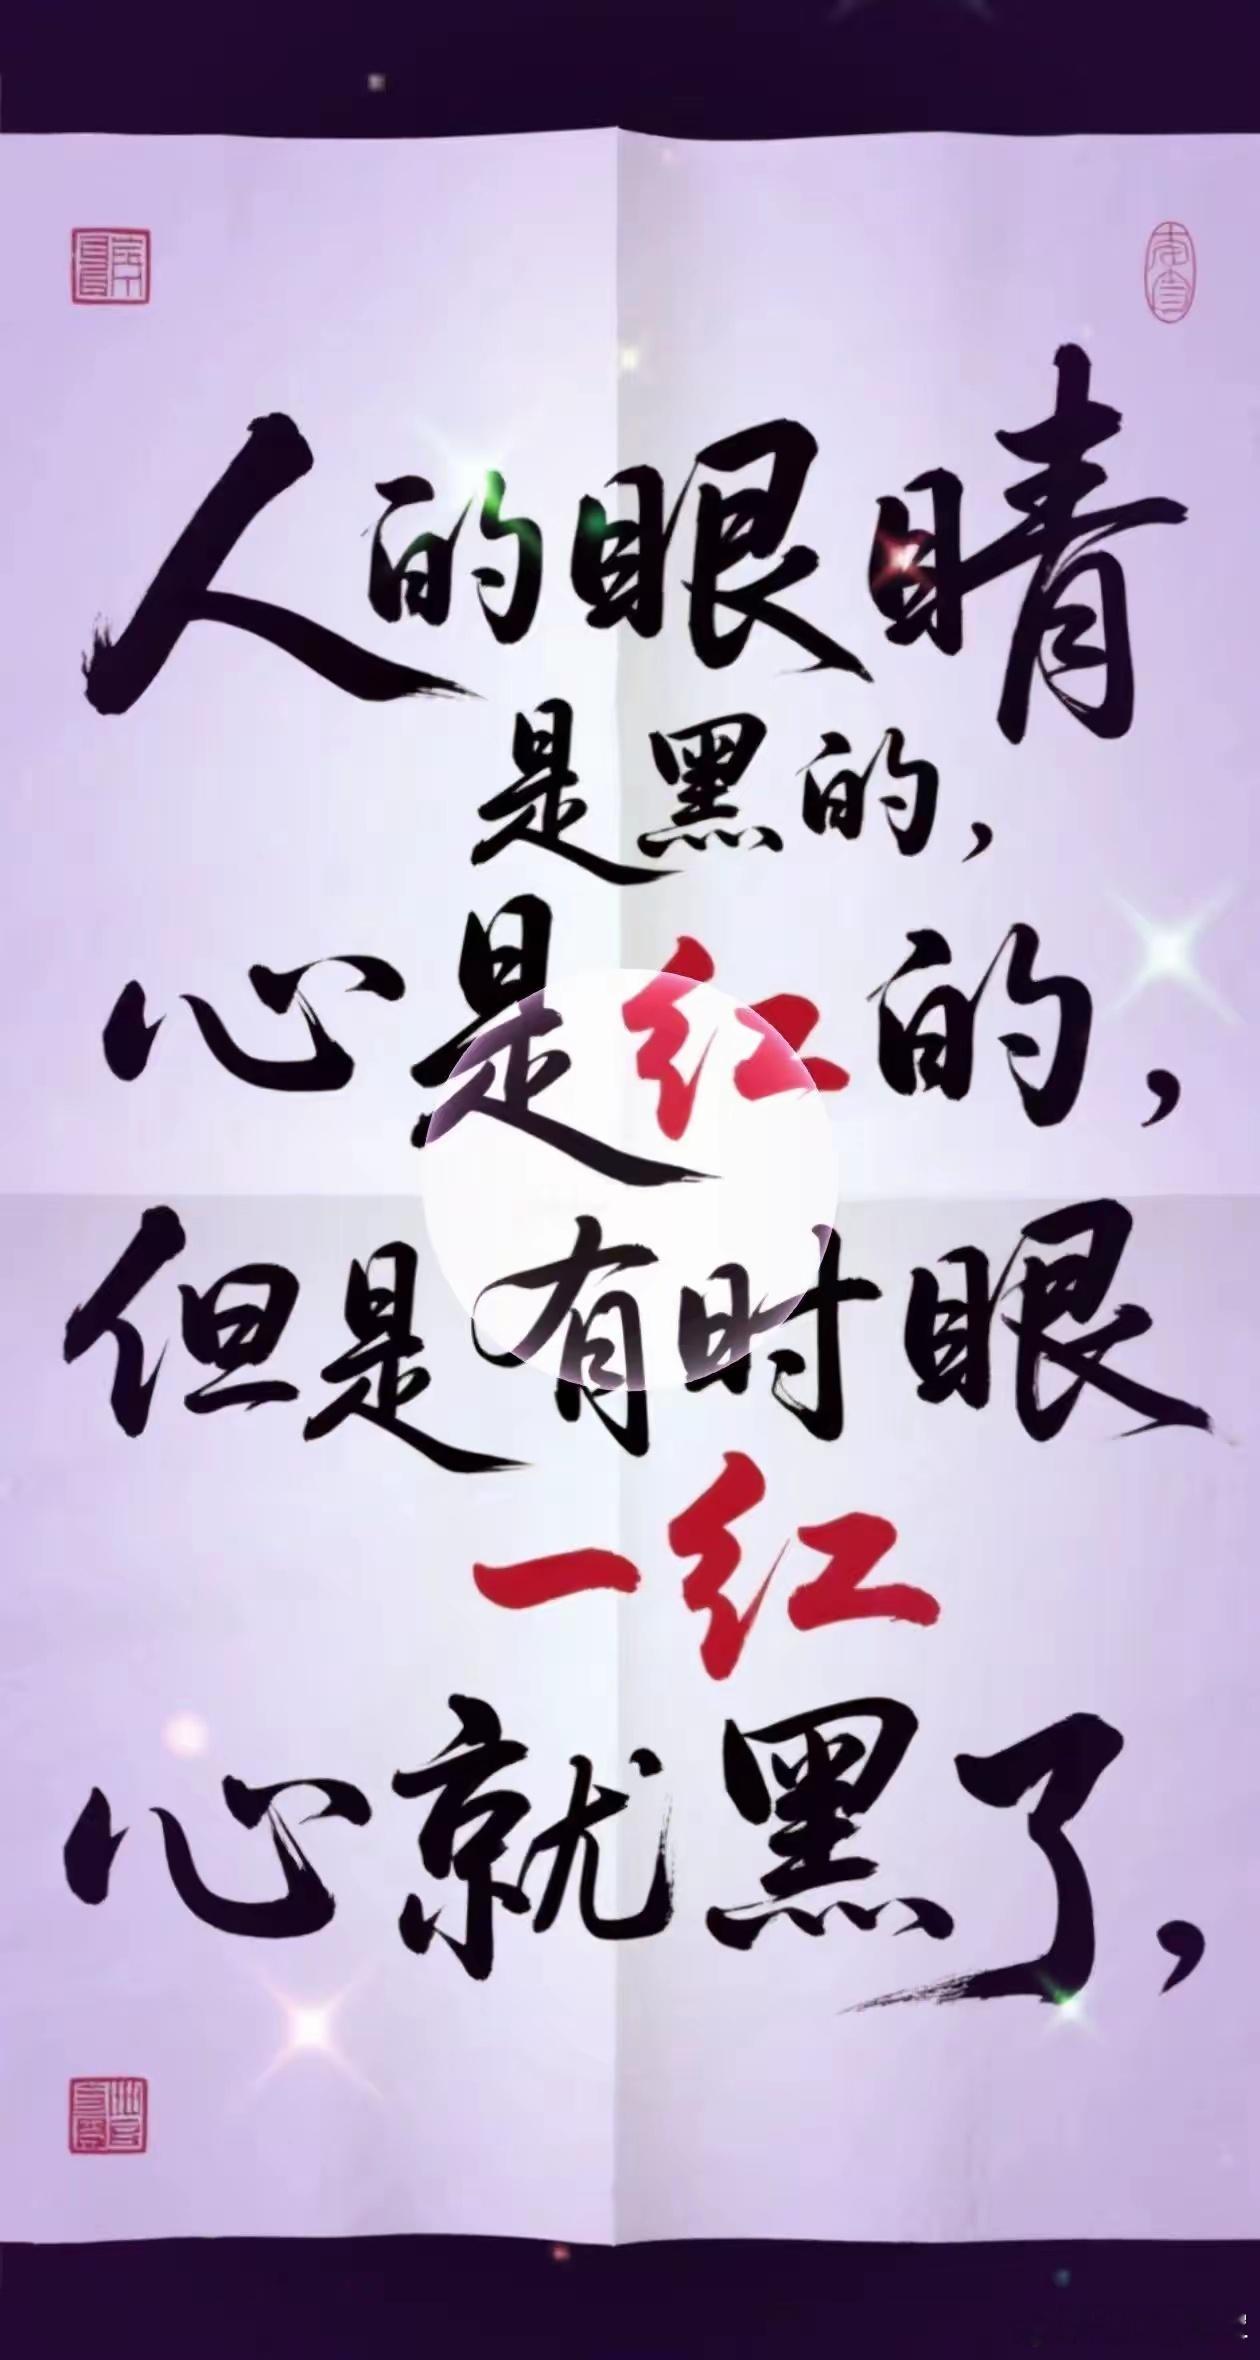 人的眼睛
是黑的，
心是红的，
但是有时眼
一红
心就黑了，